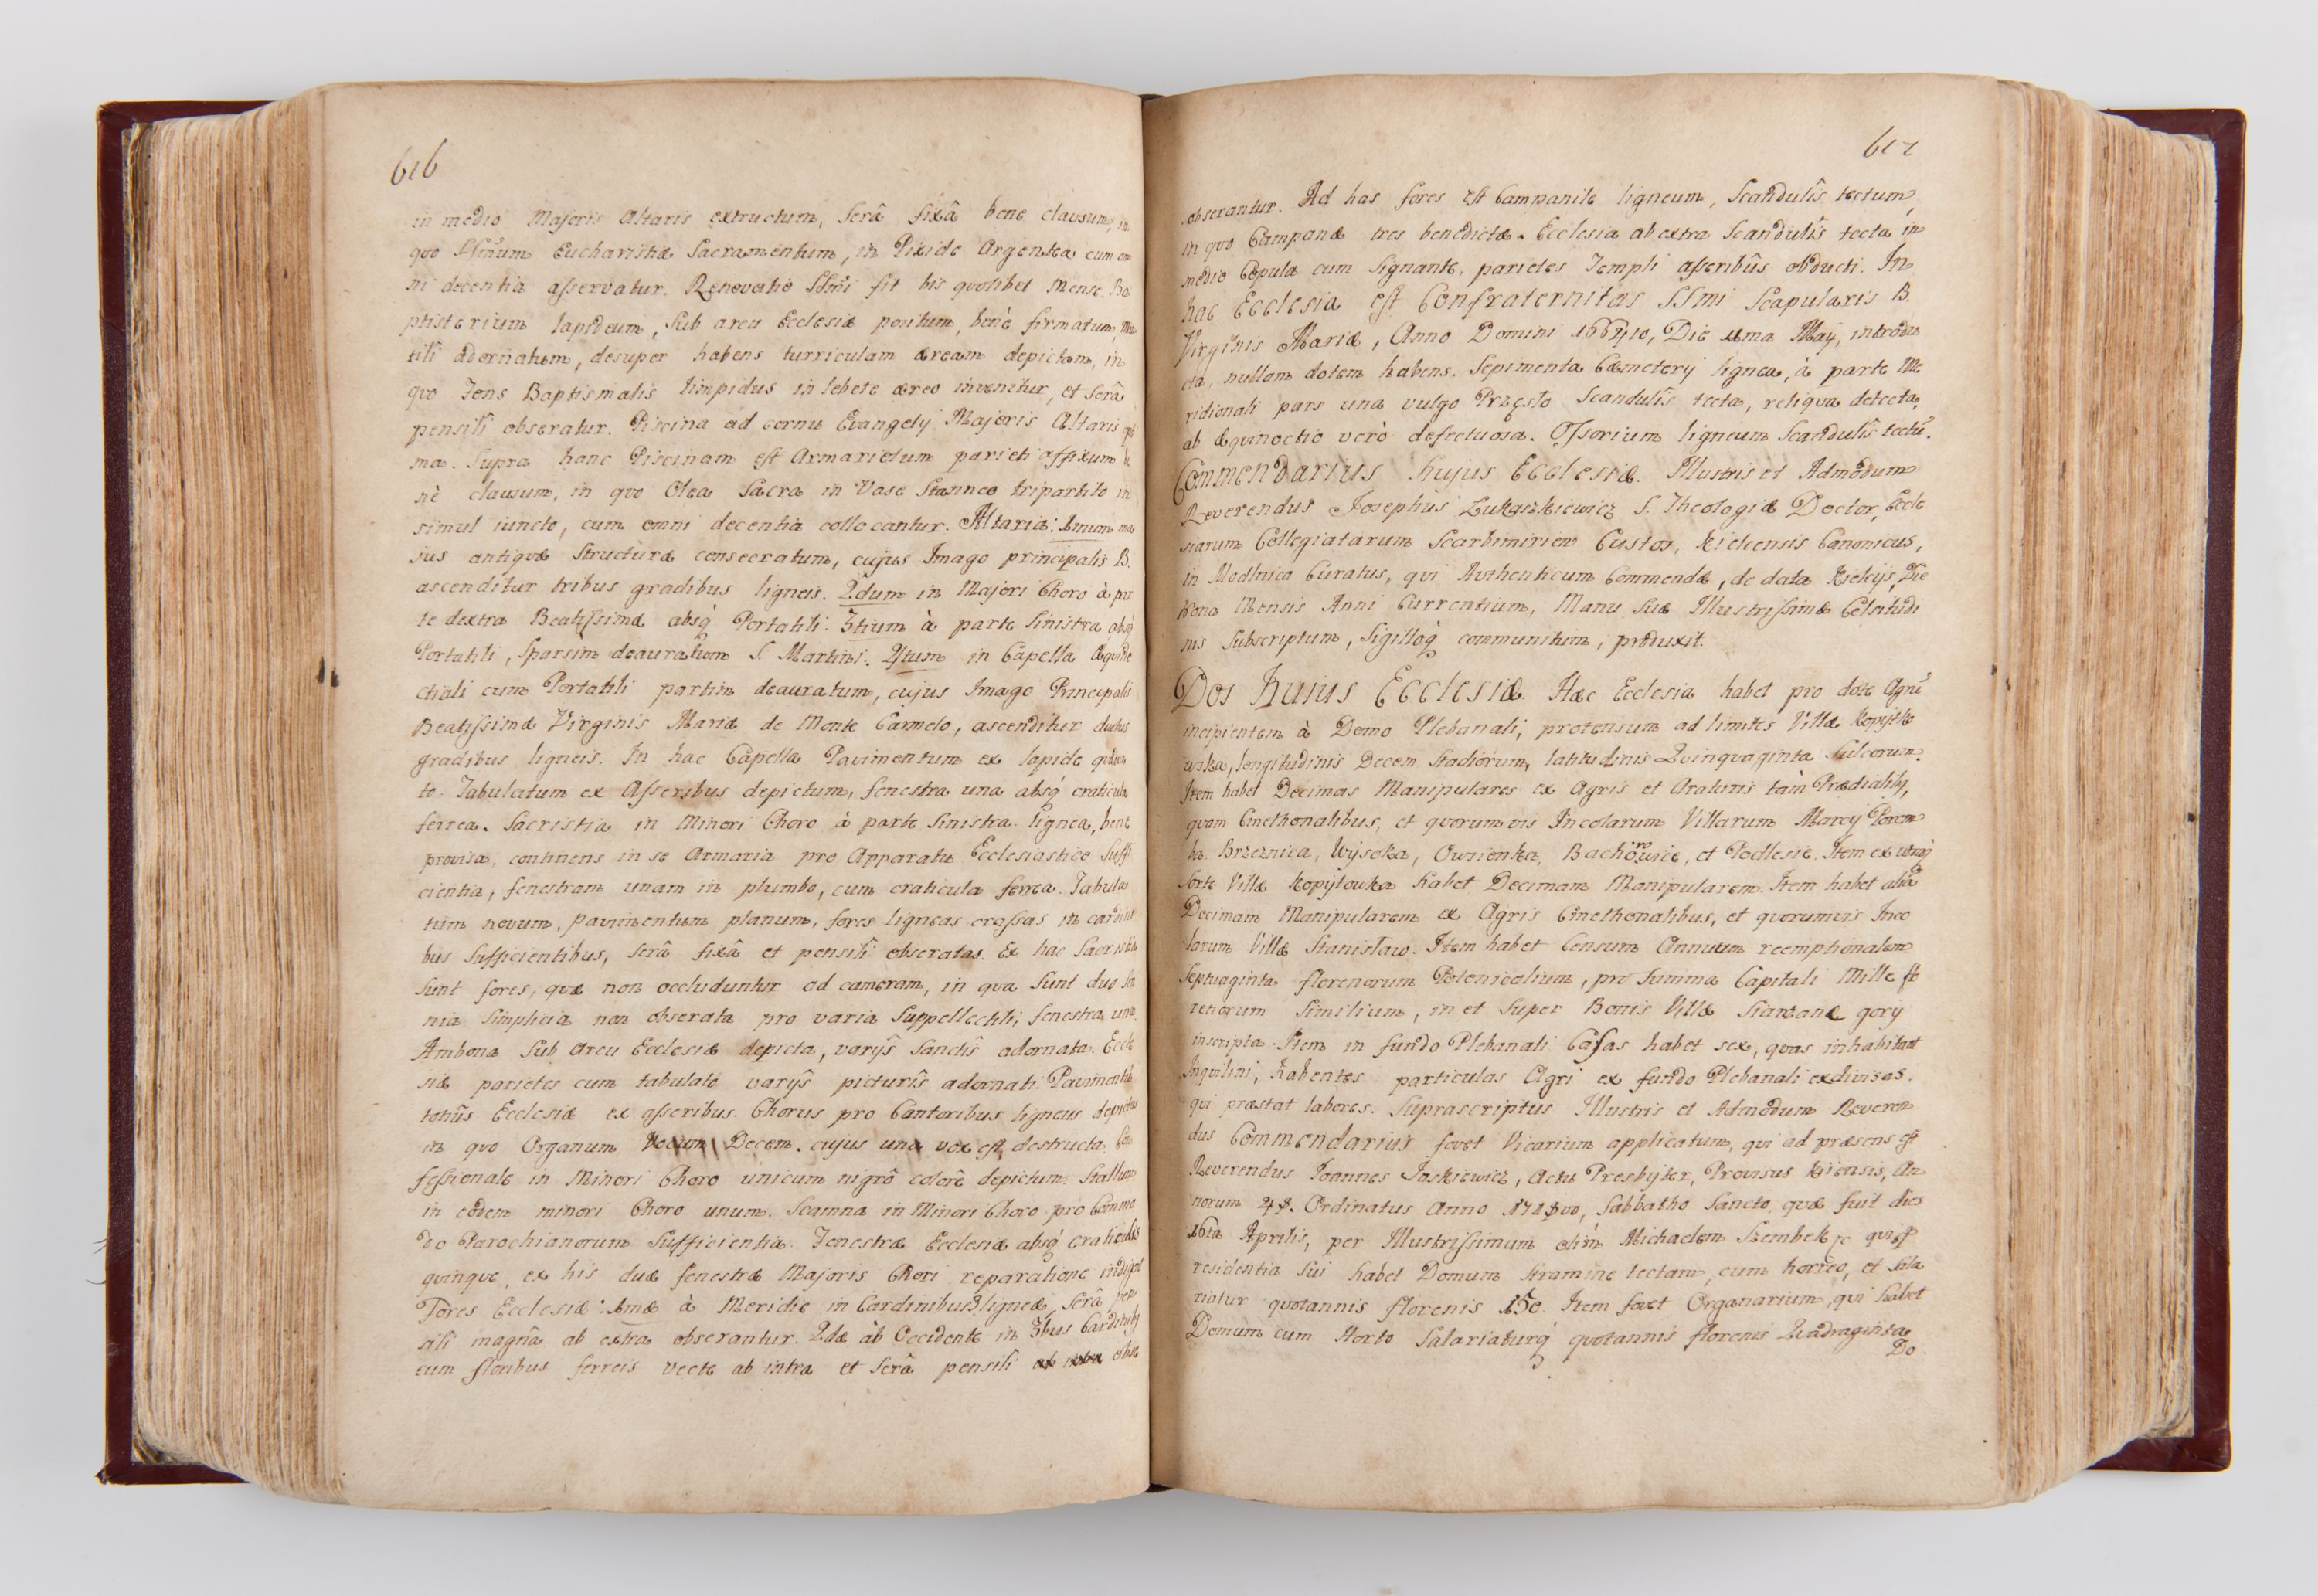 616
in medio Majoris Altaris extructum, Serâ fixâ bene clausum, in
quo SSmum Eucharistiæ Sacramentum, in Pixide Argentea cum om
ni decentia asservatur. Renovatio SSmi fit bis quolibet Mense. Ba
ptisterium lapideum, Sub arcu Ecclesiæ positum, benè firmatum,
tili adornatum, desuper habens turriculam æream depictam, in
quo Fons Baptismalis limpidus in lebete æreo invenitur, et Serâ
pensili obseratur. Piscina ad cornu Evangelij Majoris Altaris
ma. Supra hanc Piscinam est Armariolum parieti affixum be
nè clausum, in quo Olea Sacra in Vase Stanneo tripartito in
simul iuncto, cum omni decentia collocantur. Altaria: 1mum ma
ius antiquæ Structuræ consecratum, cujus Imago principalis B.
ascenditur tribus gradibus ligneis. 2dum in Majori Choro à par
te dextra Beatissimæ absq́ Portatili. 3tium à parte Sinistra absq́
Portatili, Sparsim deauratum S. Martini. 4tum in Capella Æquino
ctiali cum Portatili partim deauratum, cujus Imago Principalis
Beatissimæ Virginis Mariæ de Monte Carmelo, ascenditur duobus
gradibus ligneis. In hac Capella Pavimentum ex lapide quadra
to. Tabulatum ex Asseribus depictum, fenestra una absq́ craticula
ferrea. Sacristia in Minori Choro à parte Sinistra lignea, bene
provisa, continens in se Armaria pro Apparatu Ecclesiastico Suffi
cientia, fenestram unam in plumbo, cum craticula ferrea. Tabula
tum novum, pavimentum planum, fores ligneas crassas in cardini
bus Sufficientibus, serâ fixâ et pensili obseratas. Ex hac Sacristia
Sunt fores, quæ non occluduntur ad cameram, in qua Sunt duo Scri
nia Simplicia non obserata pro varia Suppellectili, fenestra una.
Ambona Sub Arcu Ecclesiæ depicta, varijs Sanctis adornata. Eccle
siæ parietes cum tabulato varijs picturis adornati. Pavimentũ
totius Ecclesiæ ex asseribus. Chorus pro Cantoribus ligneus depictus
in quo Organum Vocum Decem, cujus una vox est destructa. Con
fessionale in Minori Choro unicum nigrô colorê depictum. Stallum
in eodem minori Choro unum. Scamna in Minori Choro pro Commo
do Parochianorum Sufficientia. Fenestræ Ecclesiæ absq́ craticulis
quinque, ex his duæ fenestræ Majoris Chori reparatione indigent
Fores Ecclesiæ: 1mæ à Meridie in Cardinibus 3 ligneæ, Serâ pen
sili magnâ ab extra obserantur. 2dæ ab Occidente in 3bus Cardinibq
cum floribus ferreis vecte ab intra et Serâ pensili obse
617
obserantur. Ad has fores est Campanile ligneum, Scandulis tectum,
in quo Campanæ tres benedictæ. Ecclesia ab extra Scandulis tecta in
medio Copula cum Signante, parietes Templi asseribus obducti. In
hac Ecclesia est Confraternitas SSmi Scapularis B.
Virginis Mariæ, Anno Domini Die May, introdu
cta, nullam dotem habens. Sepimenta Cæmeterij lignea, à parte Me
ridionali pars una vulgo Przęsło Scandulis tecta, reliqua detecta,
ab Æquinoctio verò defectuosa. Ossorium ligneum Scandulis tectũ.
Commendarius hujus Ecclesiæ. Illustris et Admodum
Reverendus Josephus Łukaszkiewicz S. Theologiæ Doctor, Eccle
siarum Collegiatarum Scarbimirien Custos, Kielcensis Canonicus,
in Modlnica Curatus, qui Authenticum Commendæ, de data Kielcijs, Die
Mensis Anni Currentium, Manu Suæ Illustrissimæ Celsitudi
nis Subscriptum, Sigilloq́ communitum, produxit.
Dos Huius Ecclesiæ. Hæc Ecclesia habet pro dote Agrũ
incipientem à Domo Plebanali, protensum ad limites Villæ Kopijtko
wska, longitudinis Decem Stadiorum, latitudinis Quinquaginta Sulcorum.
Item habet Decimas Manipulares ex Agris et Araturis tàm Prædialibq,
quam Cmethonalibus, et quorumvis Incolarum Villarum Marcij Porem
ba Brzeznica, Wysoka, Bachowice, et Podlesie. Item ex utraq́
Sorte Villæ Kopijtowka habet Decimam Manipularem. Item habet aliã
Decimam Manipularem ex Agris Cmethonalibus, et quorumvis Inco
larum Villæ Stanisław. Item habet Censum Annuum reemptionalem
Septuaginta florenorum Polonicalium, pro Summa Capitali Mille flo
renorum Similium, in et Super Bonis Villæ gory
inscripta. Item in fundo Plebanali Casas habet sex, quas inhabitant
Inquilini, habentes particulas Agri ex fundo Plebanali exdivisas,
qui præstat labores. Suprascriptus Illustris et Admodum Reveren
dus Commendarius fovet Vicarium applicatum, qui ad præsens est
Reverendus Joannes Jaskiewicz, Actu Presbyter, Provisus An
norum 48. Ordinatus Anno Sabbatho Sancto, quæ fuit dies
16ta Aprilis, per Illustrissimum olim Michaelem Szembek
residentia Sui habet Domum Stramine tectam, cum horreo, et Sala
riatur quotannis florenis 150. Item fovet Organarium, qui habet
Domum cum Horto Salariaturq́ quotannis florenis Quadraginta
Do